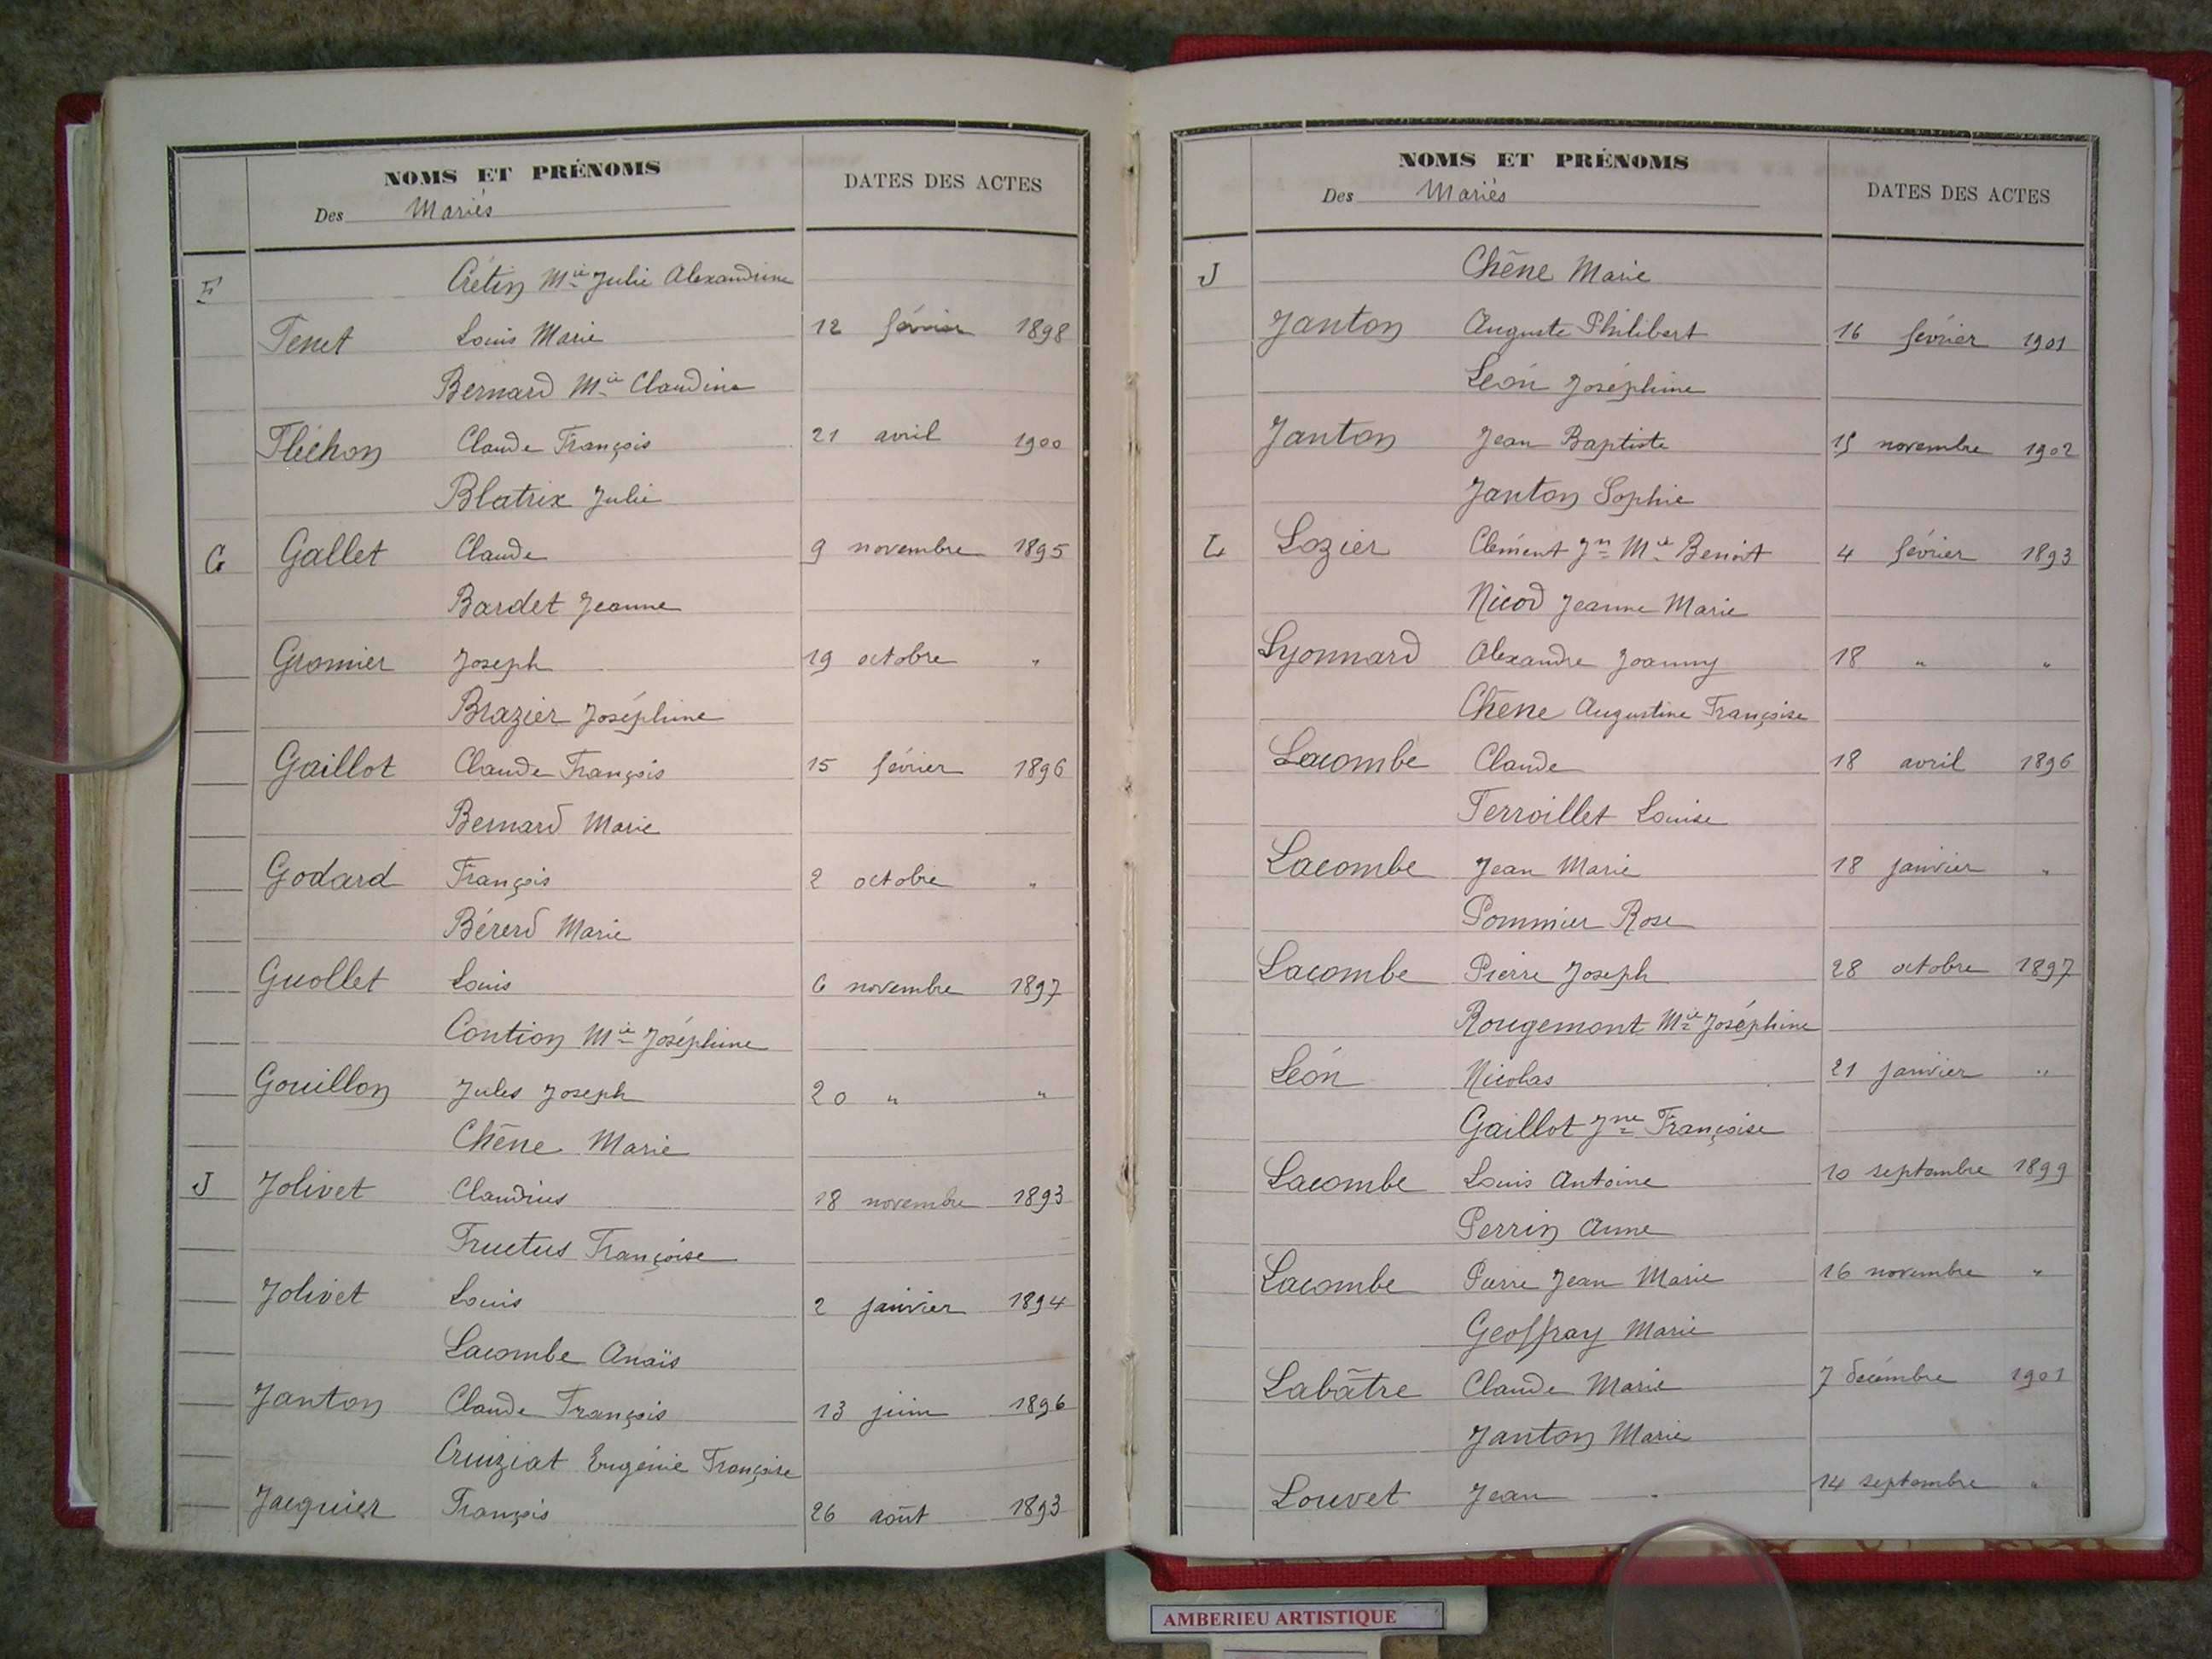 NOMS ET PRÉNOMS
Des Mariés
DATES DES ACTES
F Crétin Mie Julie Alexandrine
Fenet Louis Marie 12 février 1898
Bernard Mie Claudine
Fléchon Claude François 21 avril 1900
Blatrix Julie
G Gallet Claude 9 novembre 1895
Bardet Jeanne
Gromier Joseph 19 octobre "
Brazier Joséphine
Gaillot Claude François 15 février 1896
Bernard Marie
Godard François 2 octobre "
Bérerd Marie
Guollet Louis 6 novembre 1897
Contion Mie Joséphine
Gouillon Jules Joseph 20 " "
Chêne Marie
J Jolivet Claudius 18 novembre 1893
Fructus Françoise
Jolivet Louis 2 janvier 1894
Lacombe Anaïs
Janton Claude François 13 juin 1896
Cruiziat Eugénie Françoise
Jacquier François 26 août 1893
NOMS ET PRÉNOMS
Des Mariés
DATES DES ACTES
J Chêne Marie
Janton Auguste Philibert 16 février 1901
Léon Joséphine
Janton Jean Baptiste 15 novembre 1902
Janton Sophie
L Lozier Clément Jn Mie Benoit 4 février 1893
Nicod Jeanne Marie
Lyonnard Alexandre Joanny 18 " "
Chêne Augustine Françoise
Lacombe Claude 18 avril 1896
Terroillet Louise
Lacombe Jean Marie 18 janvier "
Pommier Rose
Lacombe Pierre Joseph 28 octobre 1897
Rougemont Mie Joséphine
Léon Nicolas 21 janvier "
Gaillot Jne Françoise
Lacombe Louis Antoine 10 septembre 1899
Perrin Anne
Lacombe Pierre Jean Marie 16 novembre "
Geoffray Marie
Labâtre Claude Marie 7 décembre 1901
Janton Marie
Louvet Jean 14 septembre "
AMBERIEU ARTISTIQUE